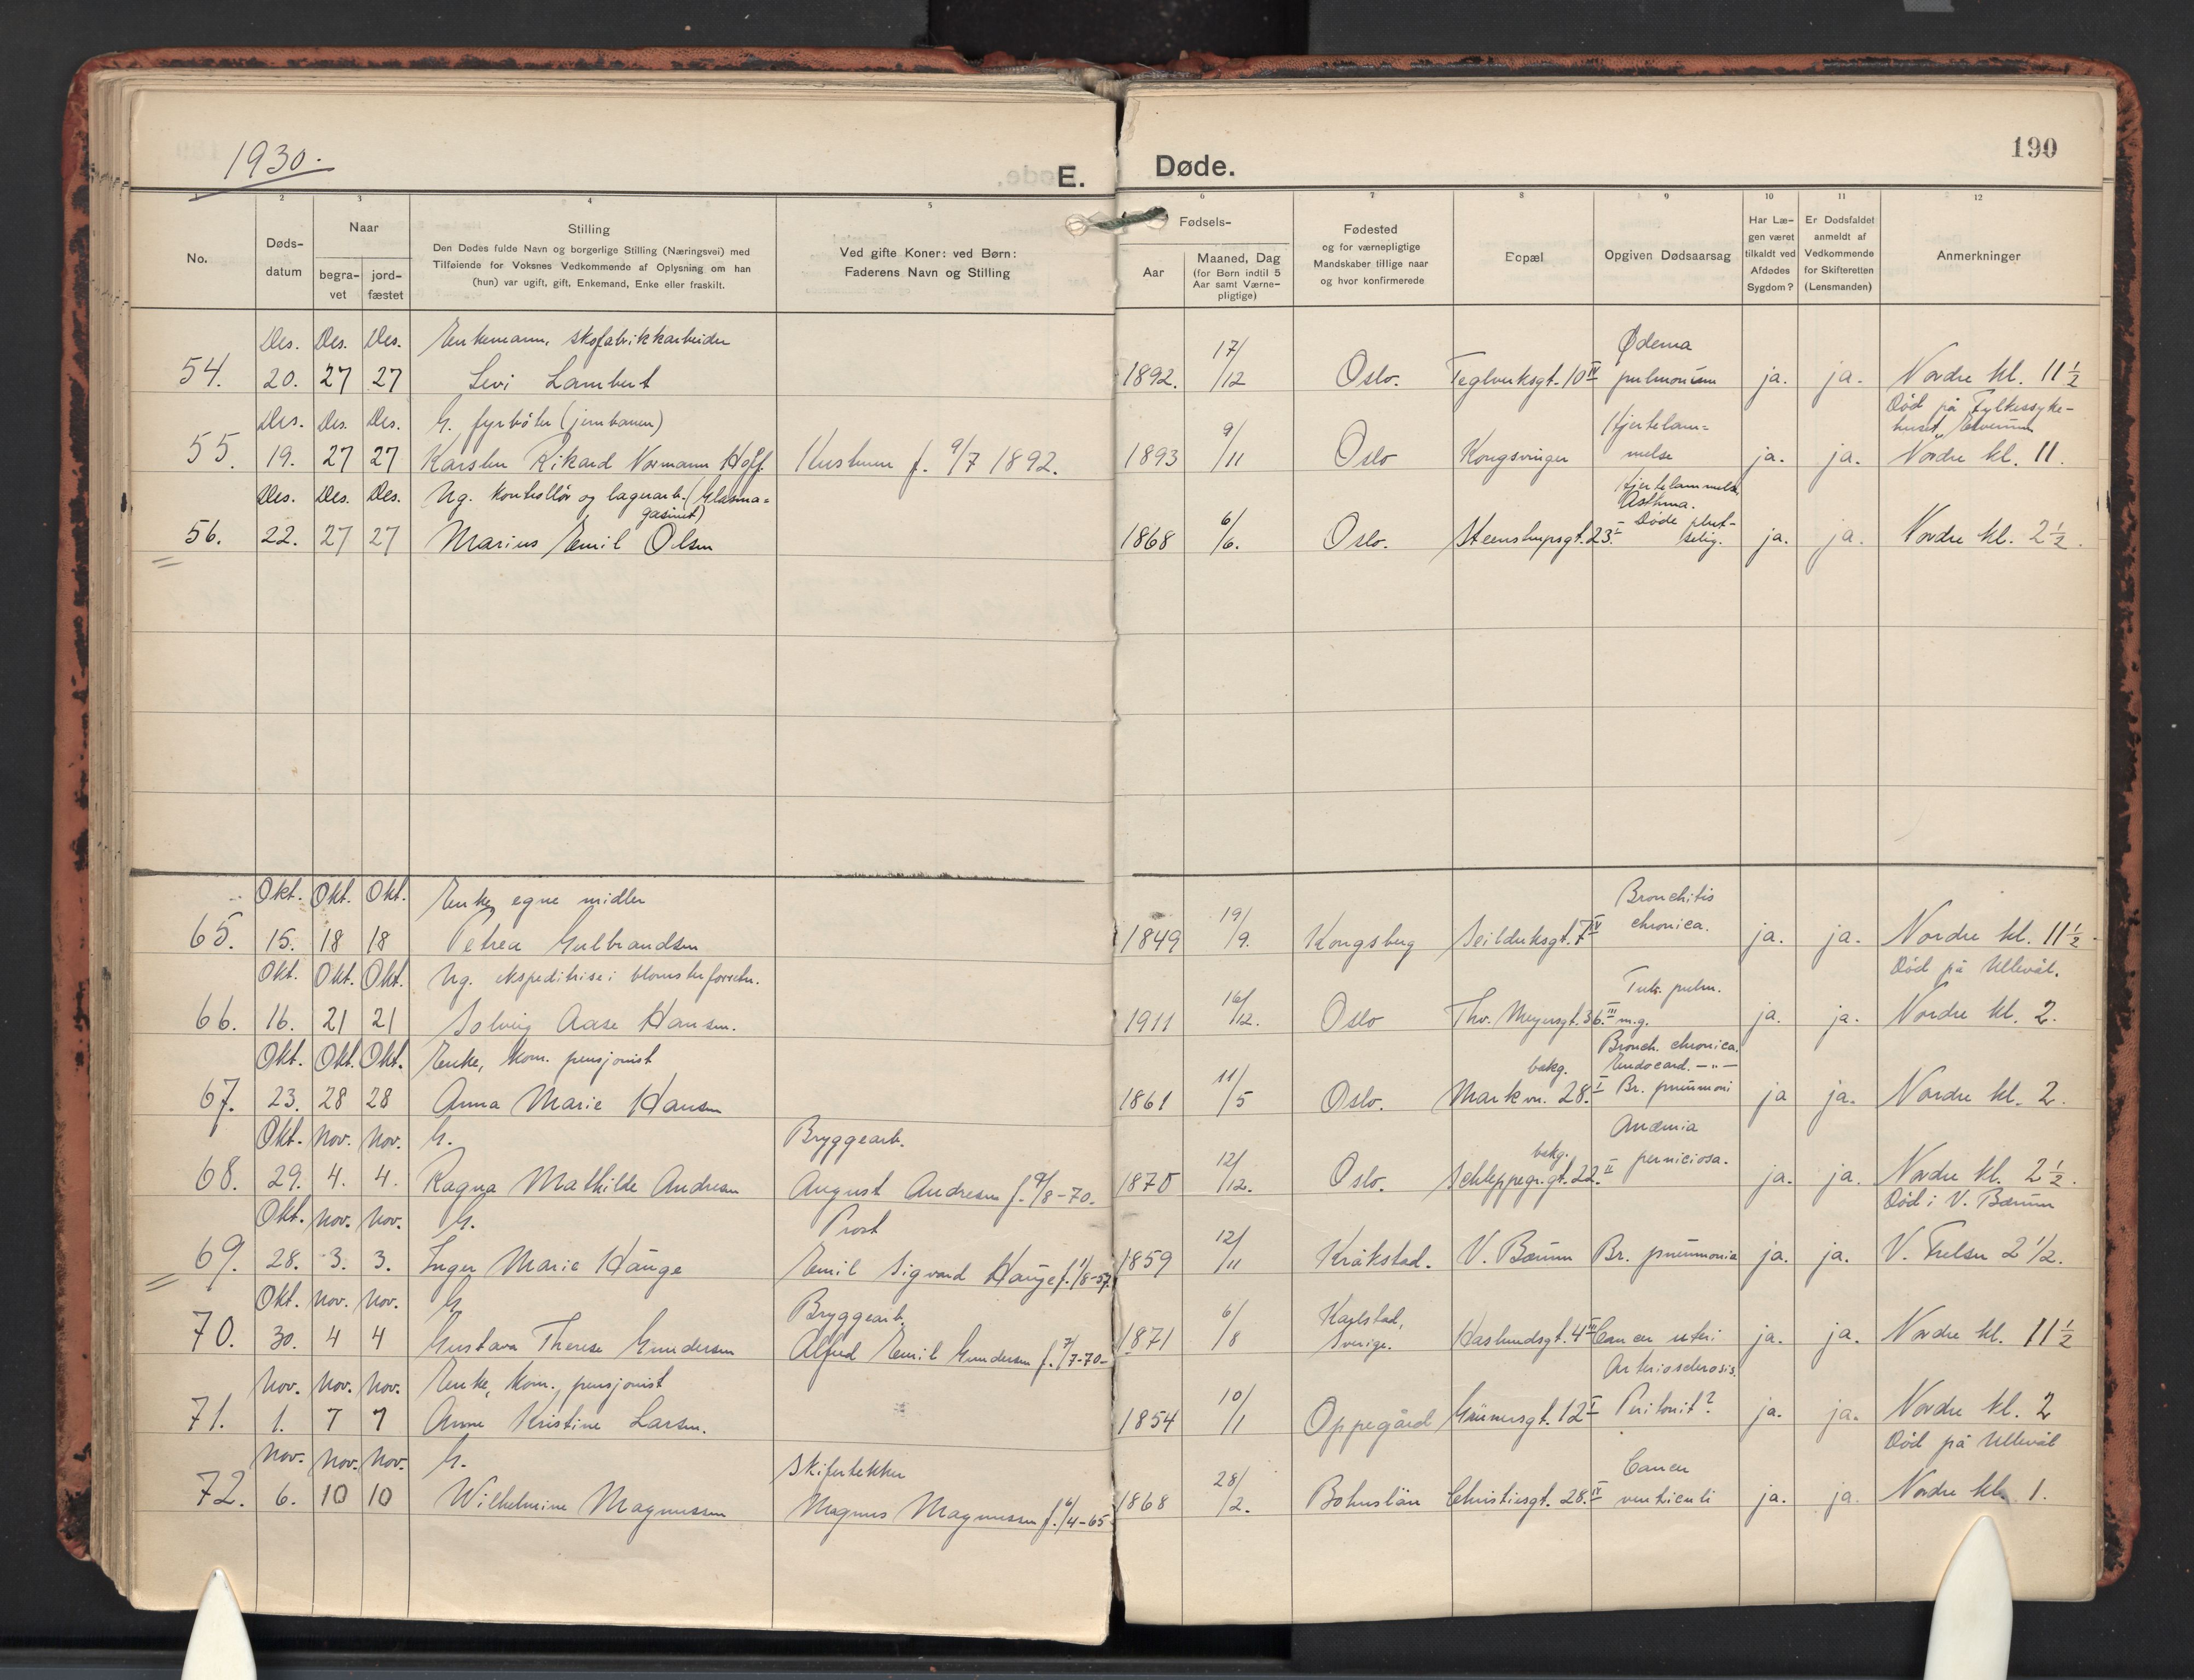 1930.
E. Døde.
190
1 2 3 4 5 6 7 8 9 10 11 12
No.
Døds-
datum
Naar
begra-
vet
jord-
fæstet
Stilling
Den Dødes fulde Navn og borgerlige Stilling (Næringsvei) med
Tilføiende for Voksnes Vedkommende af Oplysning om han
(hun) var ugift, gift, Enkemand, Enke eller fraskilt.
Ved gifte Koner: ved Børn:
Faderens Navn og Stilling
Fødsels-
Aar
Maaned, Dag
(for Børn indtil 5
Aar samt Værne-
pligtige)
Fødested
og for værnepligtige
Mandskaber tillige naar
og hvor konfirmerede
Bopæl
Opgiven Dødsaarsag
Har Læ-
gen været
tilkaldt ved
Afdødes
Sygdom?
Er Dødsfaldet
anmeldt af
Vedkommende
for Skifteretten
(Lensmanden)
Anmerkninger
Des. Des. Des. Enkemann, skofabrikkarbeider 17/ Ødema
54. 20. 27 27 Levi Lambert 1892. /12 Oslo. Teglverksgt. 10 IV pulmonum ja. ja. Nordre kl. 11 1/2
Des. Des. Des. G. fyrbøter (jernbanen) 9/ Hjertelam= Død på Fylkessyke-
huset, Elverum
55. 19. 27 27 Karsten Rikard Normann Hoff. Hustruen f. 9/7 1892. 1893 /11 Oslo Kongsvinger melse ja. ja. Nordre kl. 11.
Des. Des. Des. Ug. kontrollør og lagerarb. (Glasma= Hjertelammelse
gasinet) Asthma.
56. 22. 27 27 Marius Emil Olsen 1868 6/6. Oslo. Steenstrupsgt. 23 I Døde plut-
selig. ja. ja. Nordre kl. 2 1/2.
Okt. Okt. Okt. Enke, egne midler 19/ Bronchitis
65. 15. 18 18 Petrea Gulbrandsen 1849 /9. Kongsberg Seilduksgt. 7 IV chronica. ja. ja. Nordre kl. 11 1/2.
Okt. Okt. Okt. Ug. ekspeditrise i blomsterforretn. 16/ Tub. pulm. Død på Ullevål.
66. 16. 21 21 Solveig Aase Hansen. 1911 /12. Oslo Thv. Meyersgt. 36. III m.g. ja. ja. Nordre kl. 2.
Okt. Okt. Okt. Enke, kom. pensjonist 11/ bakg. Bronch. chronica.
Endocard. -"-
67. 23. 28 28 Anna Marie Hansen 1861 /5 Oslo. Markvn. 28. I Br. pneumoni ja ja. Nordre kl. 2.
Okt. Nov. Nov. G. Bryggearb. 12/ bakg. Anæmia
68. 29. 4. 4. Ragna Mathilde Andresen August Andresen f. 9/8-70. 1870 /12. Oslo. Schleppegr.gt. 22. II perniciosa. ja. ja. Nordre kl. 2 1/2.
Okt. Nov. Nov. G. Prost 12/ Død i V. Bærum
69. 28. 3. 3. Inger Marie Hauge Emil Sigvard Hauge f. 1/8-57. 1859 /11 Kråkstad. V. Bærum Br. pneumonia ja. ja. V. Frelser 2 1/2.
Okt. Nov. Nov. G. Bryggearb. 6/ Karlstad,
70. 30. 4 4 Gustava Therese Gundersen Alfred Emil Gundersen f. 7/7-70- 1871 /8 Sverige. Haslundsgt. 4 III Cancer uteri ja. ja. Nordre kl. 11 1/2
Nov. Nov. Nov. Enke, kom. pensjonist 10/ Arteriosclerosis.
71. 1. 7 7 Anne Kristine Larsen. 1854 /1 Oppegård Grünersgt. 12 I Peritonit? ja. ja. Nordre kl. 2
Nov. Nov. Nov. G. Skifertekker 28/ Cancer Død på Ullevål
72. 6. 10 10 Wilhelmine Magnussen Magnus Magnussen f. 6/4-65 1868 /2. Bohuslän Christiesgt. 28. IV ventriculi ja. ja. Nordre kl. 1.